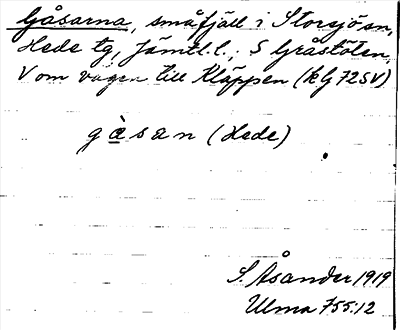 Gåsarna, småfjäll i Storsjö sn,
Hede tg, Jämtl.l., S Gråstöten,
V om vägen till Kläppen (kbl 72SV)
gå̀san (Hede)
S. Åsander 1919
Ulma 755:12